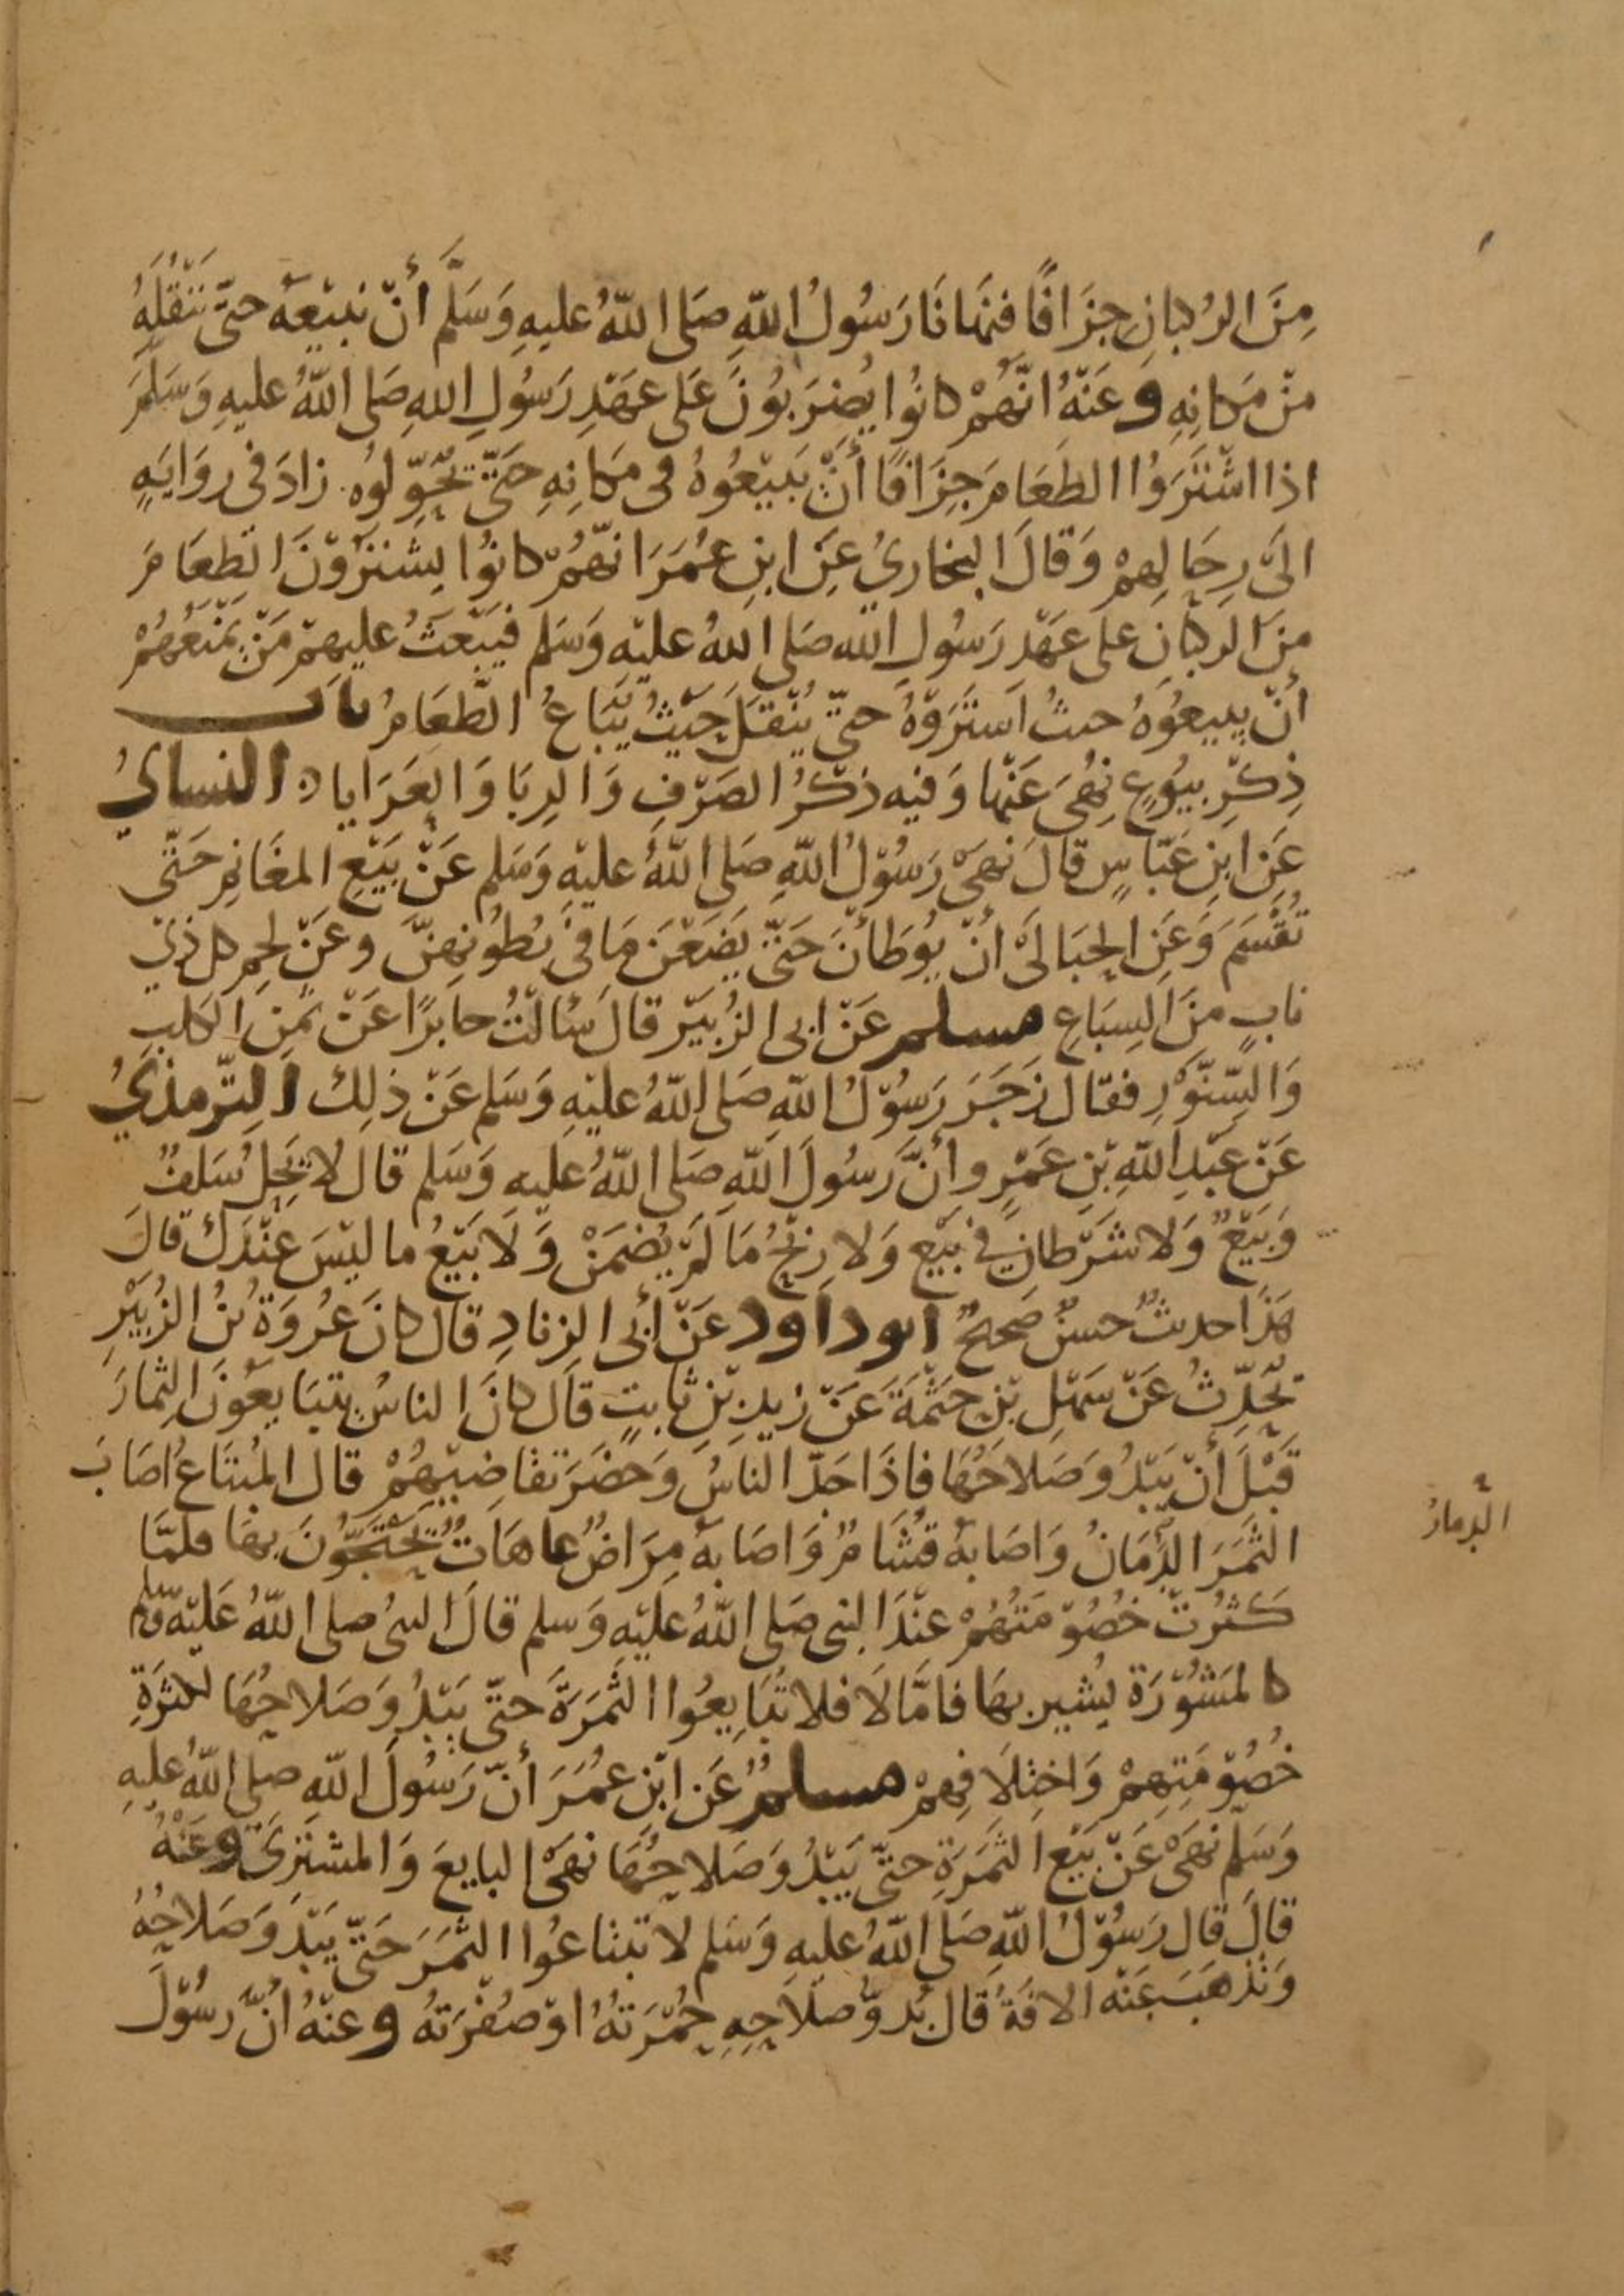 مِنَ الرُكبانِ جِزَافًا فنَهَانَا رَسُولُ اللّهِ صَلى اللّهُ عليهِ وَسَلَّم أنْ نبيْعهُ حتّى نَنْقُلَهُ
منْ مَكانِهِ وَعَنْهُ انّهُمْ كانُوا يُضْرَبُونَ عَلى عهَدْ رَسُولِ اللهِ صَلى اللّهُ عليهِ وَسَلَّمَ
اذا اشْتَرَوُا الطَعَامَ جِزَافًا أنْ يَبيْعُوُهُ فى مَكانِهِ حَتّى يُحَوِّلوُه زادَ فى روَايَةٍ
الىَ رِحَالِهِمْ وَقالَ البخاريُ عَنِ ابنِ عُمَرَ انّهُمْ كانوُا يشترَوْنَ الطعَامَ
منَ الركبانِ على عَهْدِ رَسُولِ الله صَلى اللهُ عليْه وَسَلم فيَبْعَثُ عليهمْ مَنْ يَمْنَعُهُمْ
أنْ يبيعُوهُ حيثُ اشتَرَوْهُ حتّى يُنْقلَ حَيْثُ يُبَاعُ الطّعَامُ باب
ذِكْرِ بيُوُعٍ نِهُىَ عَنْها وَفيه ذكْرُ الصَرْفِ وَالرِبَا وَالعَرَايا النسائيُ
عَنِ ابنِ عَبّاسٍ قالَ نَهىَ رَسُوْلُ اللّهِ صَلى اللّهُ عليْهِ وَسَلم عَنْ بَيْعِ المغَانِمِ حَتّى
تُقْسَمَ وَعَنِ الحَبَالَى أنْ يوُطَأنَ حَتّى يَضَعْنَ مَا فى بُطُونِهِنَّ وعَنْ لحمِ كل ذيْ
نابٍ منَ السِبَاعِ مسلم عَنْ ابى الزُبَيْر قالَ سَالْتُ جابرًا عَنْ ثمنِ الكلبِ
وَالسِّنّوْرِ فقال زجَرَ رَسُوْلُ اللّهِ صَلى اللّهُ عليْهِ وَسَلم عَنْ ذلِكَ الترْمذيُ
عَنْ عَبْدِ اللّهِ بْنِ عَمْرٍو أنَّ رَسُولَ اللّهِ صَلى اللّهُ عليه وَسَلم قال لا يَحِلُ سَلفٌ
وَبَيْعٌ وَلا شَرْطانِ فى بَيْعٍ وَلا رِبْحُ مَا لَمْ يُضْمَنْ وَلَا بَيْعُ ما ليْسَ عِنْدَكَ قالَ
هَذا حديثٌ حسنٌ صَحيحٌ ابو داود عَنْ أبى الزِنادِ قال كانَ عُرْوَةُ بْنُ الزُبَيْرِ
يُحَدِّثُ عَنْ سَهْلِ بْنِ حَثْمَةَ عَنْ زيدِ بْنِ ثابتٍ قالَ كانَ الناسُ يتبَايَعُوْنَ الثِمارَ
قَبْلَ أنْ يَبْدُوَ صَلاحُهَا فاذَا جَدّ الناسُ وَحَضَرَ تقاضيْهِمْ قال المُبْتَاعُ اصَابَ
الثَمَرَ الدَّمَانُ وَاصَابهُ قُشَامٌ وَاصَابهُ مِرَاضٌ عاهَاتٌ يَحْتَجّوُنَ بهَا فلمَّا
كَثُرتْ خُصُوْمَتُهُمْ عنْدَ النبى صَلى اللّهُ عليْهِ وَسلم قالَ النبىُ صلى اللّهُ عَليْه وسلم
كالمَشوُْرَة يُشيرِ بهَا فامَّا لَا فلا تَبَايعُوا الثَمَرَةَ حتّى يَبْدُوَ صَلاحُهَا لكثرَةِ
خُصُوْمَتِهِمْ وَاخْتِلَافِهِمْ مسلمٌ عَنِ ابْنِ عمُرَ أنّ رَسُولَ اللّهِ صلى اللّهُ عليْهِ
وَسَلّمَ نهىَ عَنْ بَيْعِ الثمَرَةِ حتّى يَبْدُوَ صَلاحُهَا نَهَى البايعَ وَالمشترِىَ وَعَنْهُ
قالَ قال رَسُوْلُ اللّهِ صَلى اللّهُ عليهِ وَسَلم لا تبْتاعُوا الثمَرَ حَتّى يَبْدُوَ صَلاحُهُ
وَتذْهَبَ عَنْه الافَةُ قال بُدوُّ صلَاحِهِ حُمْرَتهُ اوْ صُفْرَتهُ وعَنْهُ انَّ رسُوْلَ
الدمارُ